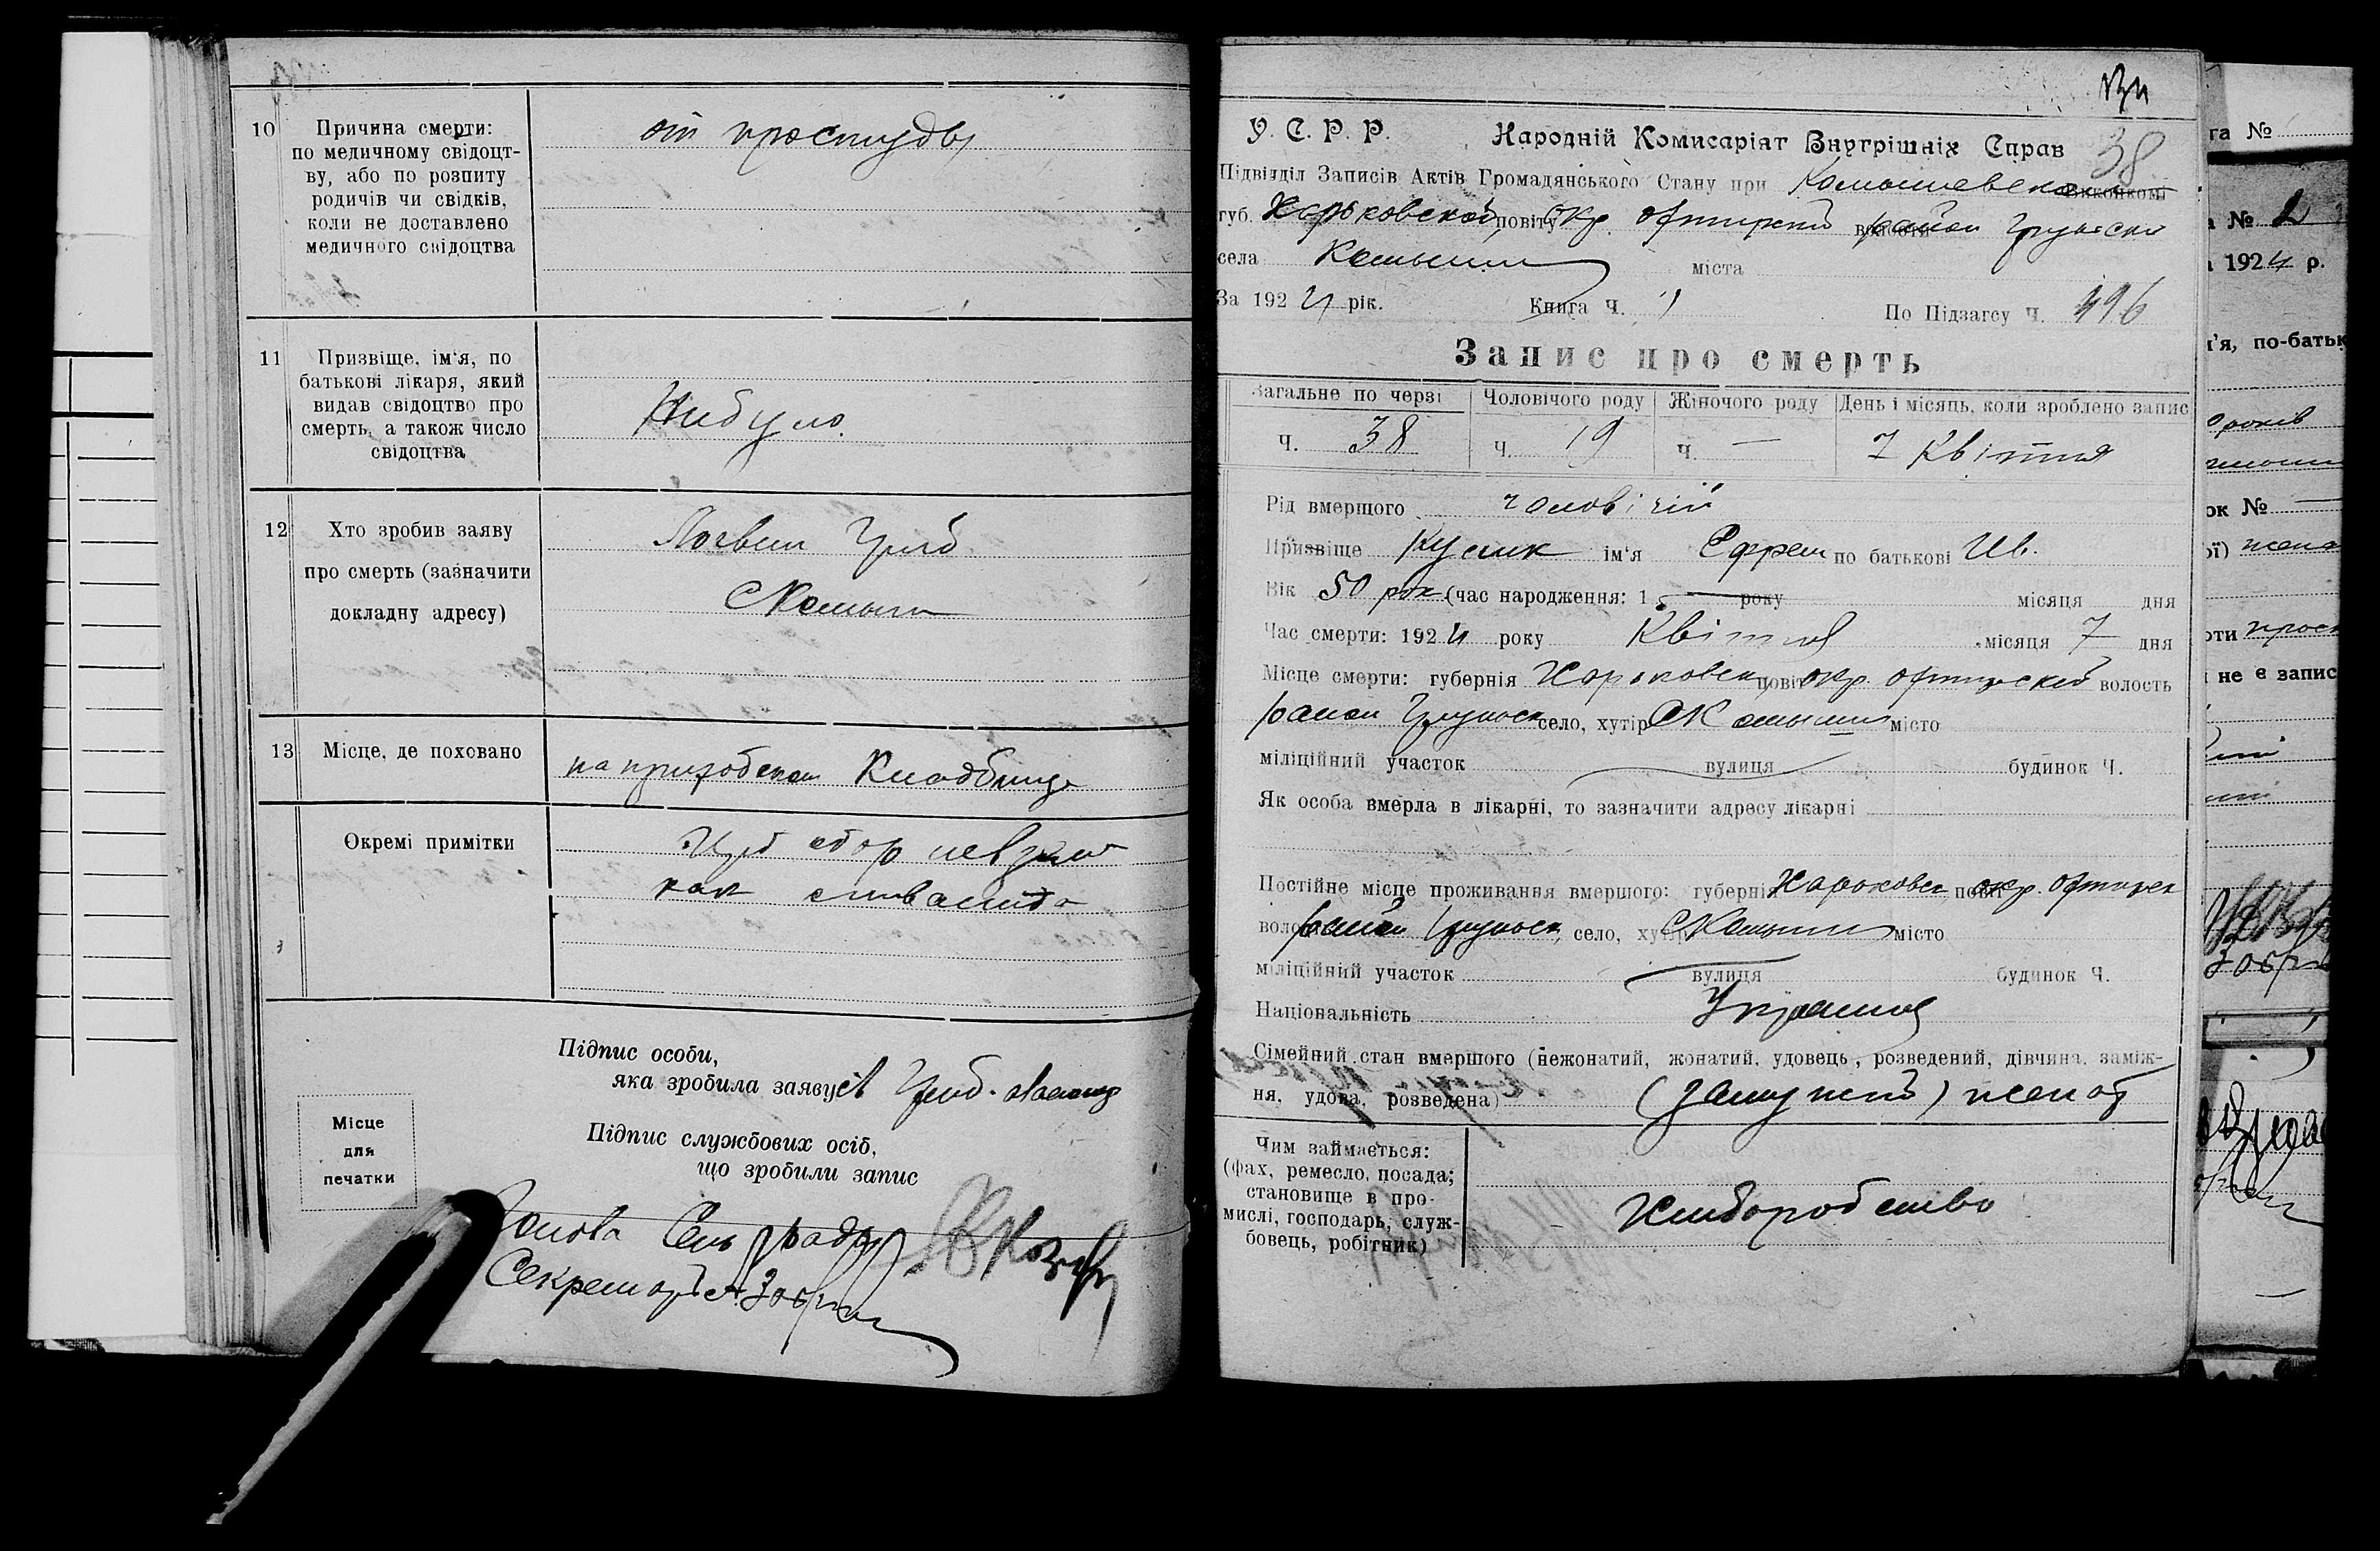 10 Причина смерти:
по медичному свідоцт-
ву, або по розпиту
родичів чи свідків,
коли не доставлено
медичного свідоцтва
от простуды
11 Призвіще, ім'я, по
батькові лікаря, який
видав свідоцтво про
смерть, а також число
свідоцтва
Небуло
12 Хто зробив заяву
про смерть (зазначити
докладну адресу)
Логвин Гриб
С Камыши
13 Місце, де поховано
на приходском Кладбище
Окремі примітки
как
Підпис особи,
яка зробила заяву Гриб
Місце
для
печатки
Підпис службових осіб,
що зробили запис
Голова Сельради
Секретарь
38
У. С. Р. Р. Народній Комисаріят Внутрішніх Справ
Підвідділ Записів Актів Громадянського Стану при Камышевском Виконкомі
губ. Харьковской повіту окр. Ахтирский волости район Грунськ
села Камыши міста
За 1924 рік. Книга Ч. 1 По Підзагсу Ч. 496
Запис про смерть
Загальне по черзі Чоловічого роду Жіночого роду День і місяць, коли зроблено запис
Ч. 38 Ч. 19 Ч. — 7 Квітня
Рід вмершого чоловічий
Призвіще Кулик ім'я Ефрем по батькові Ив.
Вік 50 рок (час народження: 1 року місяця дня
Час смерти: 1924 року Квітня місяця 7 дня
Місце смерти: губернія Харьковск повіт окр. Ахтирский волость
район Грунськ село, хутір С Камыши місто
міліційний участок вулиця будинок Ч.
Як особа вмерла в лікарні, то зазначити адресу лікарні
Постійне місце проживання вмершого: губернія Харьковск повіт окр. Ахтирск
волость район Грунськ, село, хутір С Камыши місто
міліційний участок вулиця будинок Ч.
Національність
Сімейний стан вмершого (нежонатий, жонатий, удовець, розведений, дівчина, заміж-
ня, удова, розведена)
Чим займається:
(фах, ремесло, посада;
становище в про-
мислі, господарь, служ-
бовець, робітник)
Хлиборобство
га №
№ 2
1924 р.
'я, по-батьк
років
ок №
ої) жена
оти прост
не є запис